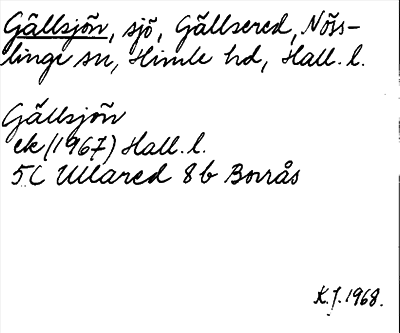 Gällsjön, sjö, Gällsered, Nöss-
linge sn, Himle hd, Hall. l.
Gällsjön
ek (1967) Hall. l.
5C Ullared 8b Bonås
K.J. 1968.